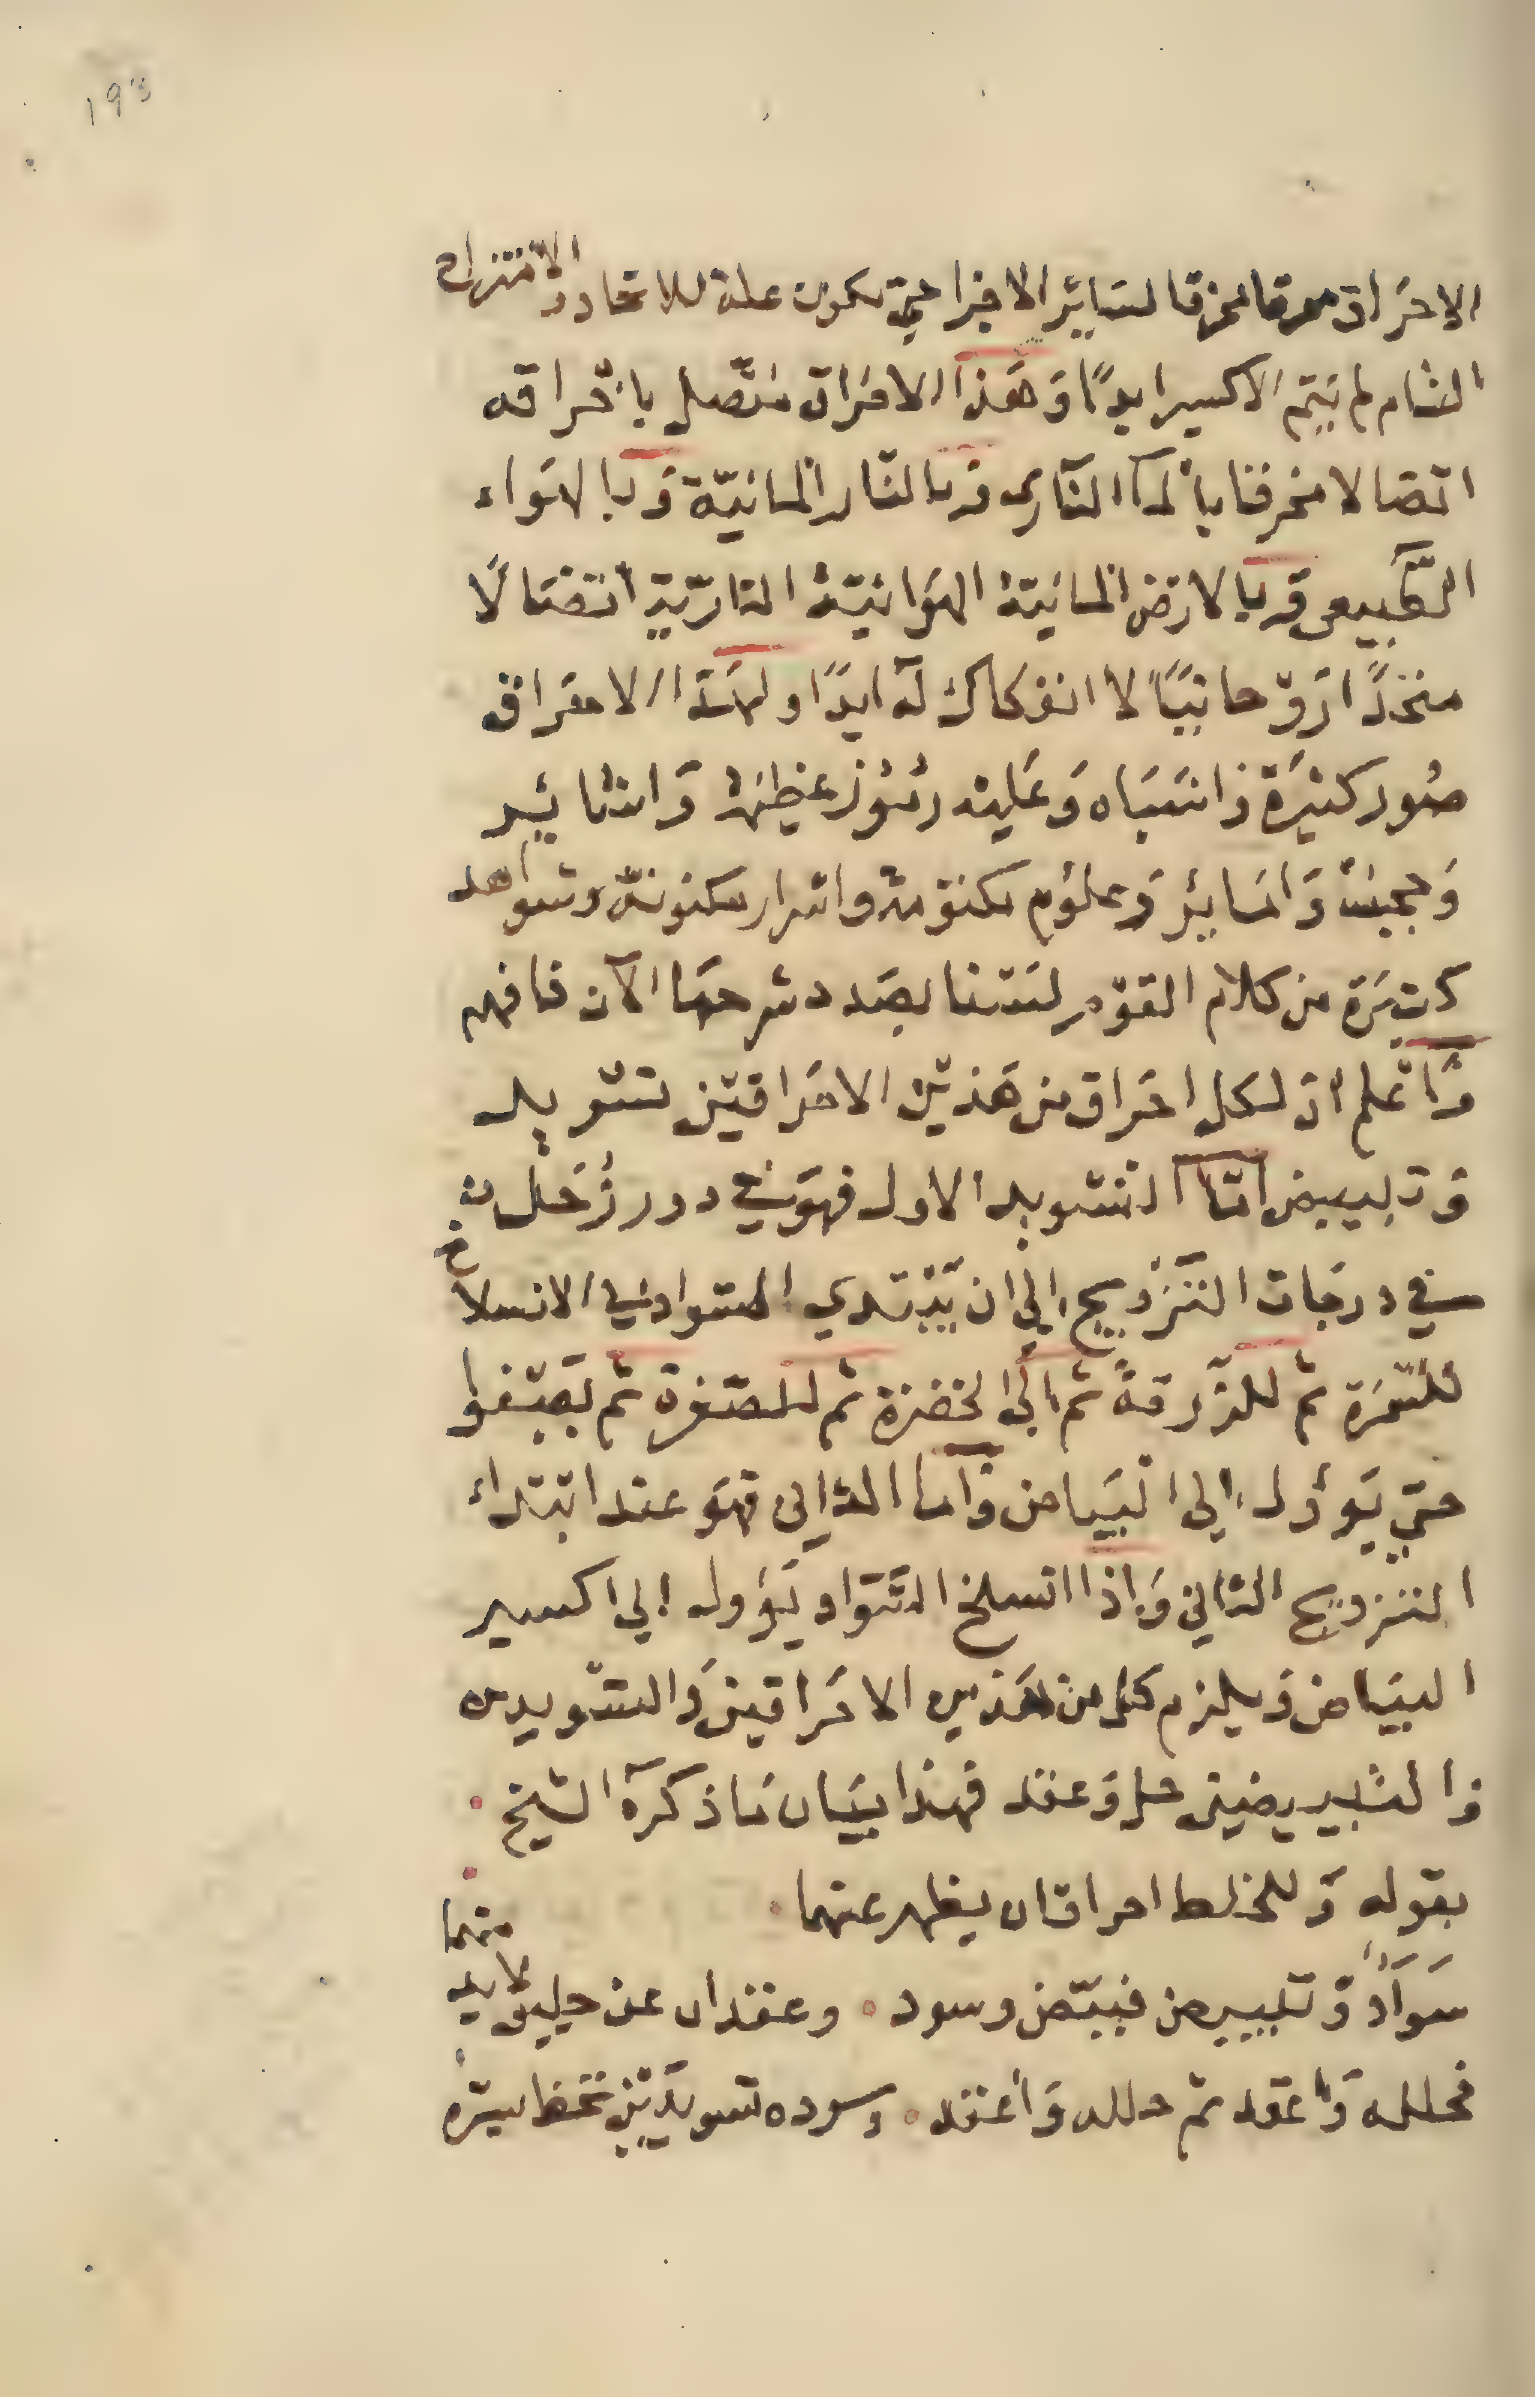 193
الاحراق محرقا لسائر الاجزا حتي يكون علة للاتحاد والامتزاج
التام لم يتم الاكسير ابدًا وَهَذا الاحراق متّصل باحراقه
اتصالا محرقا بالمآ النّاري وبالنّار المائيّة وَبالهَواء
الطّبيعي وَبالارض المائيّة الهَوائيّة الناريّة اتصَالًا
متحدًا رُوحانيًا لا انفكاك لَه ابدًا ولهَذا الاحراق
صُور كثيرَة وَاشبَاه وَعَليه رمُوز عظيمة وَاشاير
وَعجيبة وَامَاير وَعلوُم مكتومة واسرار مكنونة وشواهد
كثيرَة من كلام القوم لسْنا بصَدد شرحهَا الآن فافهم
وَاعْلم انّ لكل احراق من هَذيْن الاحراقيْن تسْويد
وَتبييض امّا التسويد الاول فهوَ في دور زُحَل
في درجَات التّزويج الي ان يَبْتدي السواد في الانسلاخ
للسّمرَة ثم للزّرقة ثم الي الخضرة ثم للصّفرة ثم يَصفوا
حتي يَؤول الي البيَاض وَاما الثاني فهَو عند ابتداء
التزويج الثاني وَاذا انسلخ السَّوَاد يَؤول الي اكسير
البيَاض وَيلزم كل من هَذين الاحرَاقين وَالتسْويدين
وَالتبييضين حل وَعقد فهذا بيَان مَا ذكرَه الشيخ
بقوله وَللخلط احراقان يظهر عنهما
سَوَادٌ وَتبييض فبيّض وسود ٠ وعقدان عن حلين لابد منهما
فحلله وَاعقد ثم حلله وَاعقد ٠ وسوده تسويديْن تحظ بسرّه